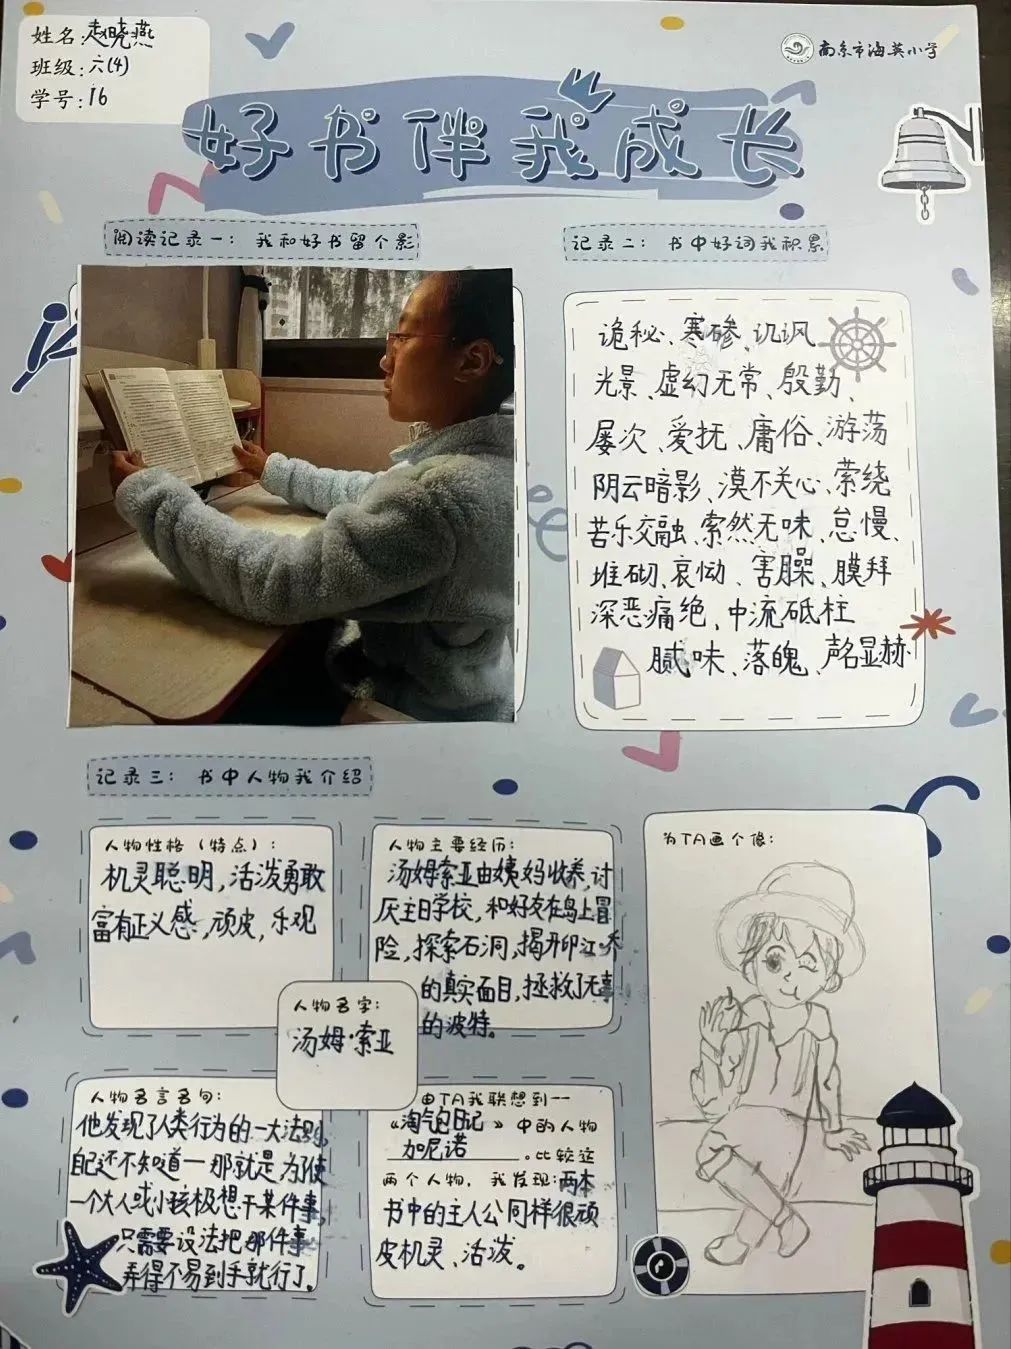 姓名:赵晓燕
班级:六(4)
学号:16
南京市海英小学
好书伴我成长
阅读记录一：我和好书留个影
记录二：书中好词我积累
诡秘、寒碜、讥讽
光景、虚幻无常、殷勤、
屡次、爱抚、庸俗、游荡
阴云暗影、漠不关心、萦绕
苦乐交融、索然无味、怠慢、
堆砌、哀恸、害臊、膜拜
深恶痛绝、中流砥柱
腻味、落魄、声名显赫
记录三：书中人物我介绍
人物性格（特点）:
机灵聪明，活泼勇敢
富有正义感，顽皮，乐观
人物主要经历:
汤姆索亚由姨妈收养，讨
厌主日学校，和好友在岛上冒
险，探索石洞，揭开印江·乔
的真实面目，拯救了无辜
的波特。
为TA画个像:
人物名字:
汤姆·索亚
人物名言名句:
他发现了人类行为的一大法则，
自己还不知道一那就是为了使
一个大人或小孩极想干某件事，
只需要设法把那件事
弄得不易到手就行了。
由TA我联想到——
《淘气包日记》中的人物
加尼诺。比较这
两个人物，我发现:两本
书中的主人公同样很顽
皮机灵、活泼。